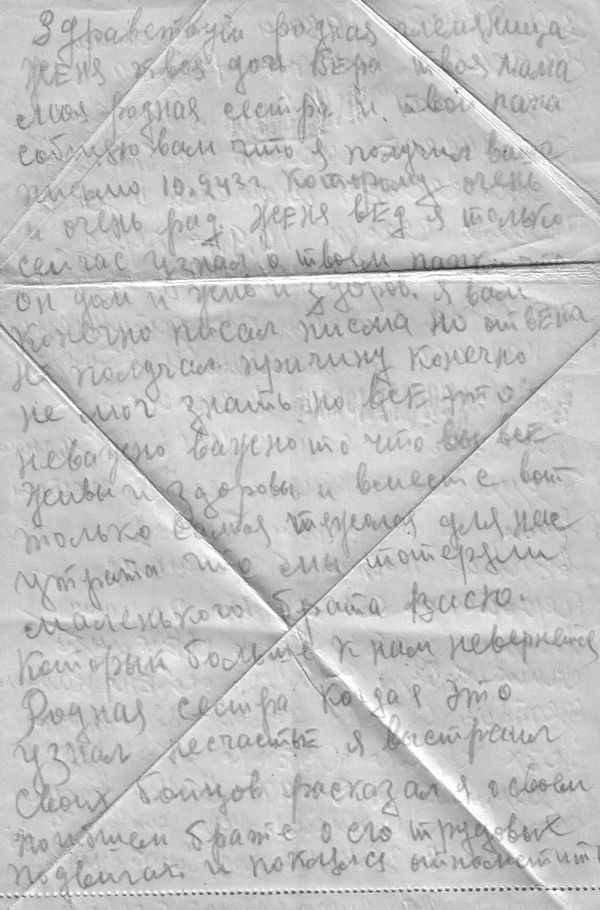 Здравствуй родная племяница
Женя твоя доч Вера твоя мама
моя родная сестра и твой папа
собщаю вам что я получил ваше
письмо 10.243г. которому очень
и очень рад Женя вед я только
сейчас узнал о твоем папе что
он дом и жив и здоров. я вам
конечно писал писма но ответа
не получал причину конечно
не мог знать но все это
неважно важно то что вы все
живы и здоровы и вместе вот
только самая тяжолая для нас
утрата что мы потеряли
маленького брата Васю.
Который больше к нам невернется
Родная сестра когда я это
узнал несчастье я выстроил
своих бойцов расказал я о своем
погибшем брате о его трудовых
подвигах и поклялся отпомстить